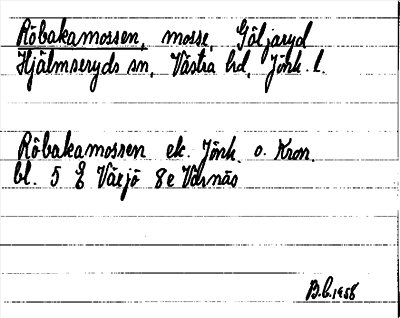 Röbakamossen, mosse, Göljaryd
Hjälmseryds sn, Västra hd, Jönk. l.
Röbakamossen ek. Jönk. o. Kron.
bl. 5 E Växjö 8e Värnäs
B.C. 1958